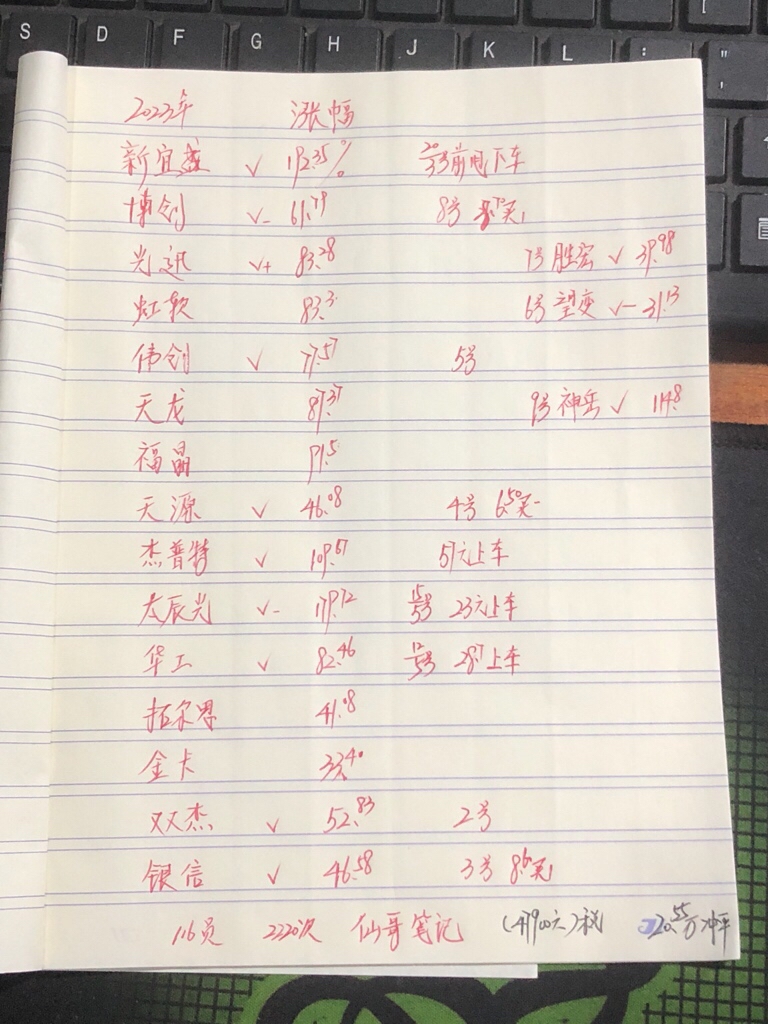 S D F G H J K L : "
2023年 涨幅
新宜盛 √ 192.35% 前 下车
博创 √- 61.79 8号
光迅 √+ 83.28 7号 胜宏 √ 39.98
虹软 83.3 6号 望变 √- 31.13
伟创 √ 77.57 5号
天龙 87.37 9号 神岳 √ 114.8
福晶 91.5
天源 √ 46.08 4号 6.50
杰普特 √ 109.67 57元上车
太辰光 √- 179.12 23元上车
华工 √ 82.46 28.7上车
拓尔思 41.08
金卡 33.40
双杰 √ 52.83 2号
银信 √ 46.58 3号 8.6
116员 2220次 仙哥笔记 (47900元)税 20.55万